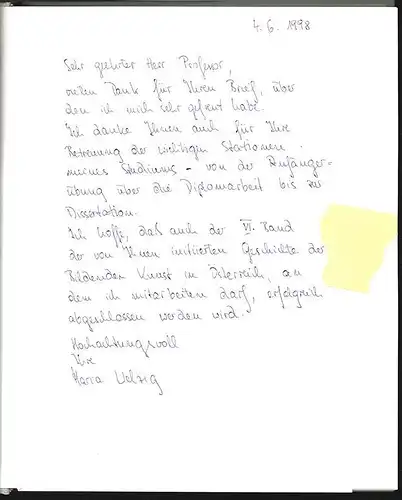 4. 6. 1998
Sehr geehrter Herr Professor,
vielen Dank für Ihren Brief, über
den ich mich sehr gefreut habe.
Ich danke Ihnen auch für Ihre
Betreuung der wichtigen Stationen
meines Studiums – von der Anfänger=
übung über die Diplomarbeit bis zur
Dissertation.
Ich hoffe, daß auch der VI. Band
der von Ihnen initiierten Geschichte der
Bildenden Kunst in Österreich, an
dem ich mitarbeiten darf, erfolgreich
abgeschlossen werden wird.
Hochachtungsvoll
Ihre
Maria Welzig